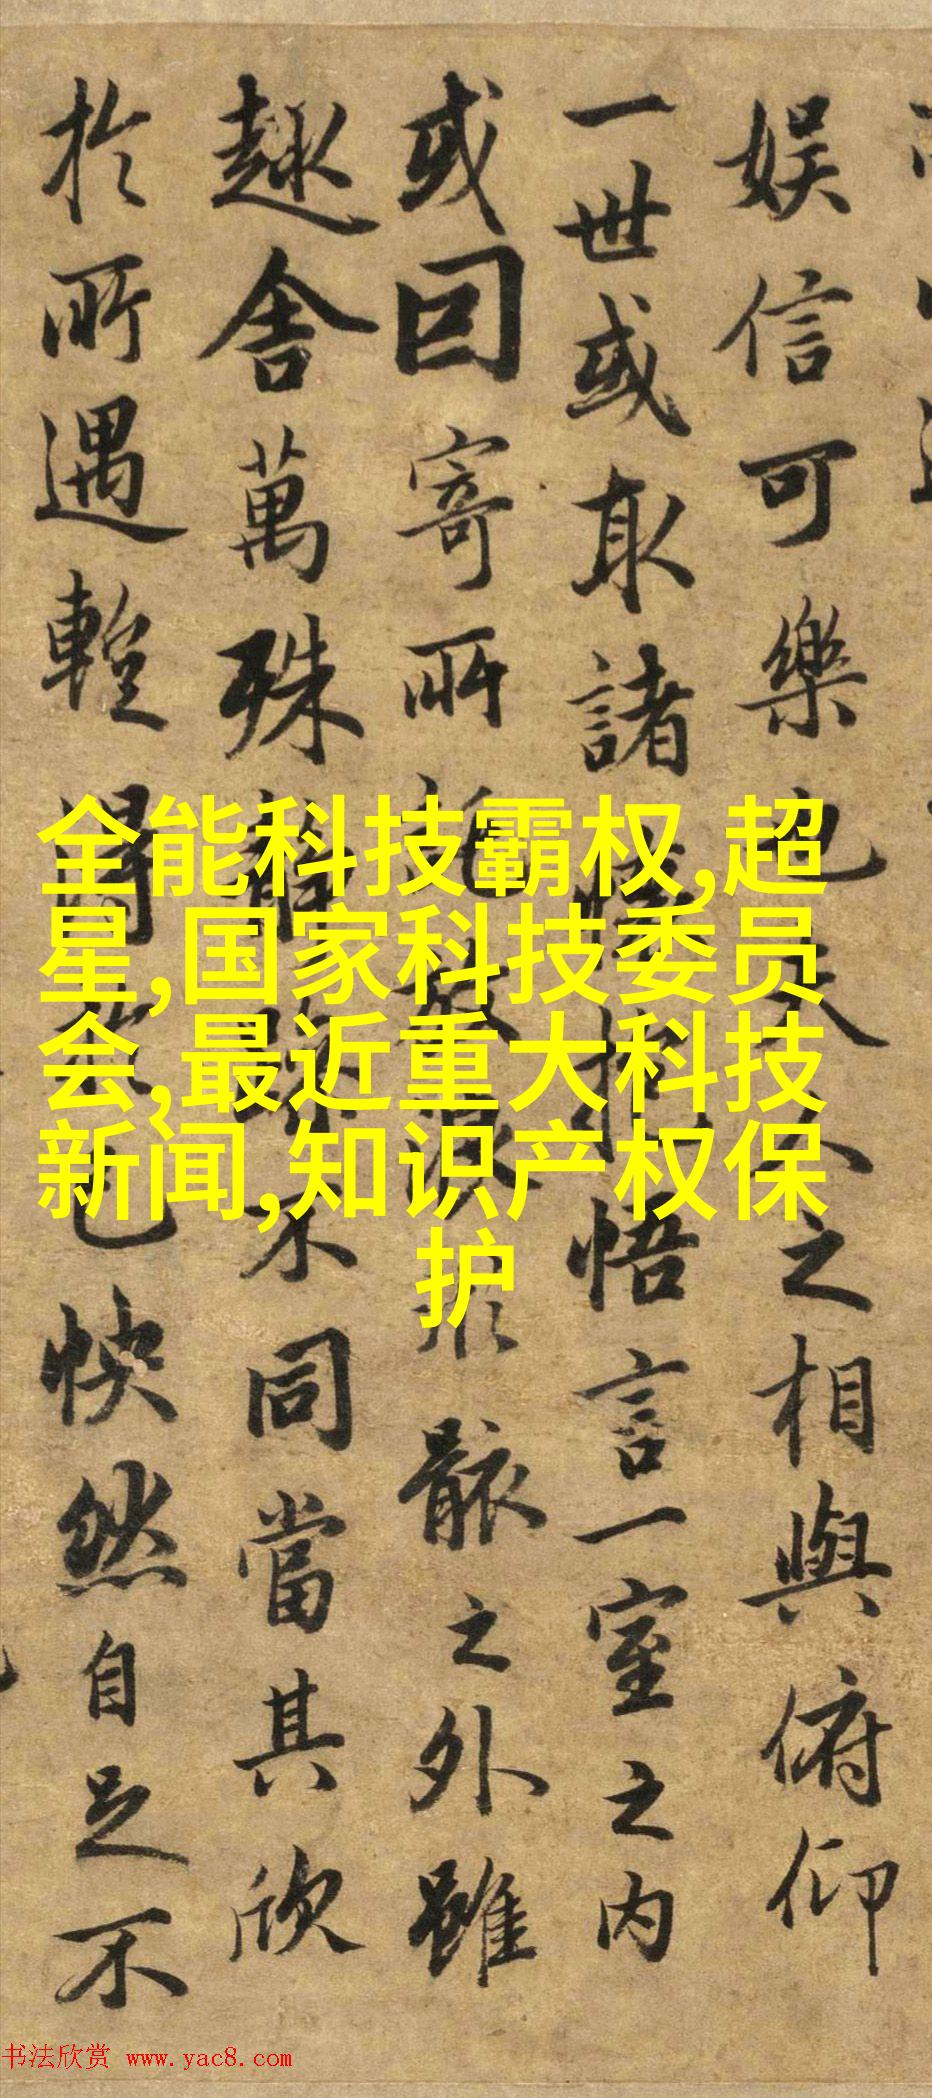 娛信可樂也夫人之相與俯仰
一世或取諸懷抱悟言一室之內
或因寄所託放浪形骸之外雖
趣舍萬殊靜躁不同當其欣
於所遇輙得於己快然自足不
全能科技霸权,超
星,国家科技委员
会,最近重大科技
新闻,知识产权保
护
书法欣赏 www.yac8.com